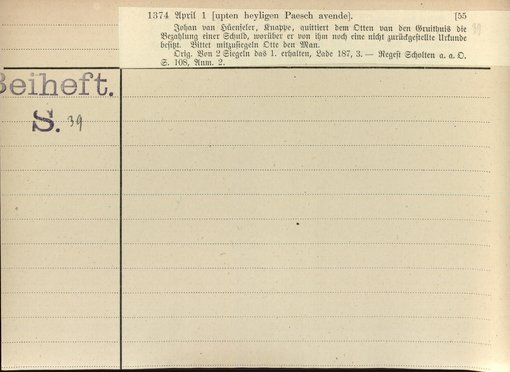 1374 April 1 [upten heyligen Paesch avende]. [55
Johan van Hüenseler, Knappe, quittiert dem Otten van den Gruithuis die
Bezahlung einer Schuld, worüber er von ihm noch eine nicht zurückgestellte Urkunde
besitzt. Bittet mitzusiegeln Otte den Man.
Orig. Von 2 Siegeln das 1. erhalten, Lade 187, 3. — Regest Scholten a. a. O.
S. 108, Anm. 2.
Beiheft.
S. 39